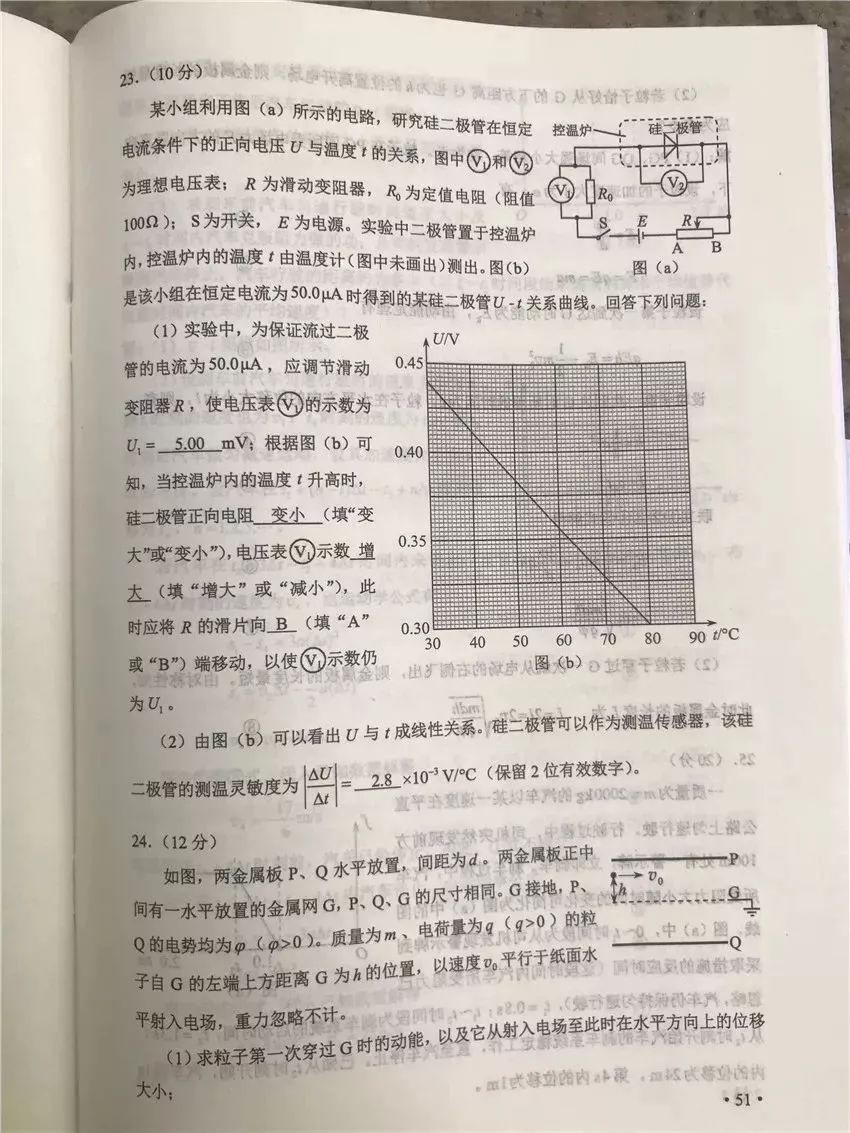 23.（10分）
某小组利用图（a）所示的电路，研究硅二极管在恒定
电流条件下的正向电压 U 与温度 t 的关系，图中 V₁ 和 V₂
为理想电压表；R 为滑动变阻器，R₀ 为定值电阻（阻值
100Ω）；S为开关，E 为电源。实验中二极管置于控温炉
内，控温炉内的温度 t 由温度计（图中未画出）测出。图（b）
是该小组在恒定电流为50.0μA时得到的某硅二极管U-t关系曲线。回答下列问题：
控温炉
硅二极管
V₁
R₀
V₂
S
E
R
A
B
图（a）
（1）实验中，为保证流过二极
管的电流为50.0μA，应调节滑动
变阻器R，使电压表 V₁ 的示数为
U₁= 5.00 mV；根据图（b）可
知，当控温炉内的温度 t 升高时，
硅二极管正向电阻 变小 （填“变
大”或“变小”），电压表 V₁ 示数 增
大 （填“增大”或“减小”），此
时应将 R 的滑片向 B （填“A”
或“B”）端移动，以使 V₁ 示数仍
为U₁。
U/V
0.45
0.40
0.35
0.30
30 40 50 60 70 80 90 t/°C
图（b）
（2）由图（b）可以看出 U 与 t 成线性关系。硅二极管可以作为测温传感器，该硅
二极管的测温灵敏度为 |ΔU/Δt| = 2.8 ×10⁻³ V/°C（保留2位有效数字）。
24.（12分）
如图，两金属板 P、Q 水平放置，间距为d。两金属板正中
间有一水平放置的金属网 G，P、Q、G 的尺寸相同。G接地，P、
Q的电势均为φ（φ>0）。质量为m、电荷量为q（q>0）的粒
子自 G 的左端上方距离 G 为h的位置，以速度v₀平行于纸面水
平射入电场，重力忽略不计。
P
v₀
h
G
Q
（1）求粒子第一次穿过 G 时的动能，以及它从射入电场至此时在水平方向上的位移
大小；
·51·